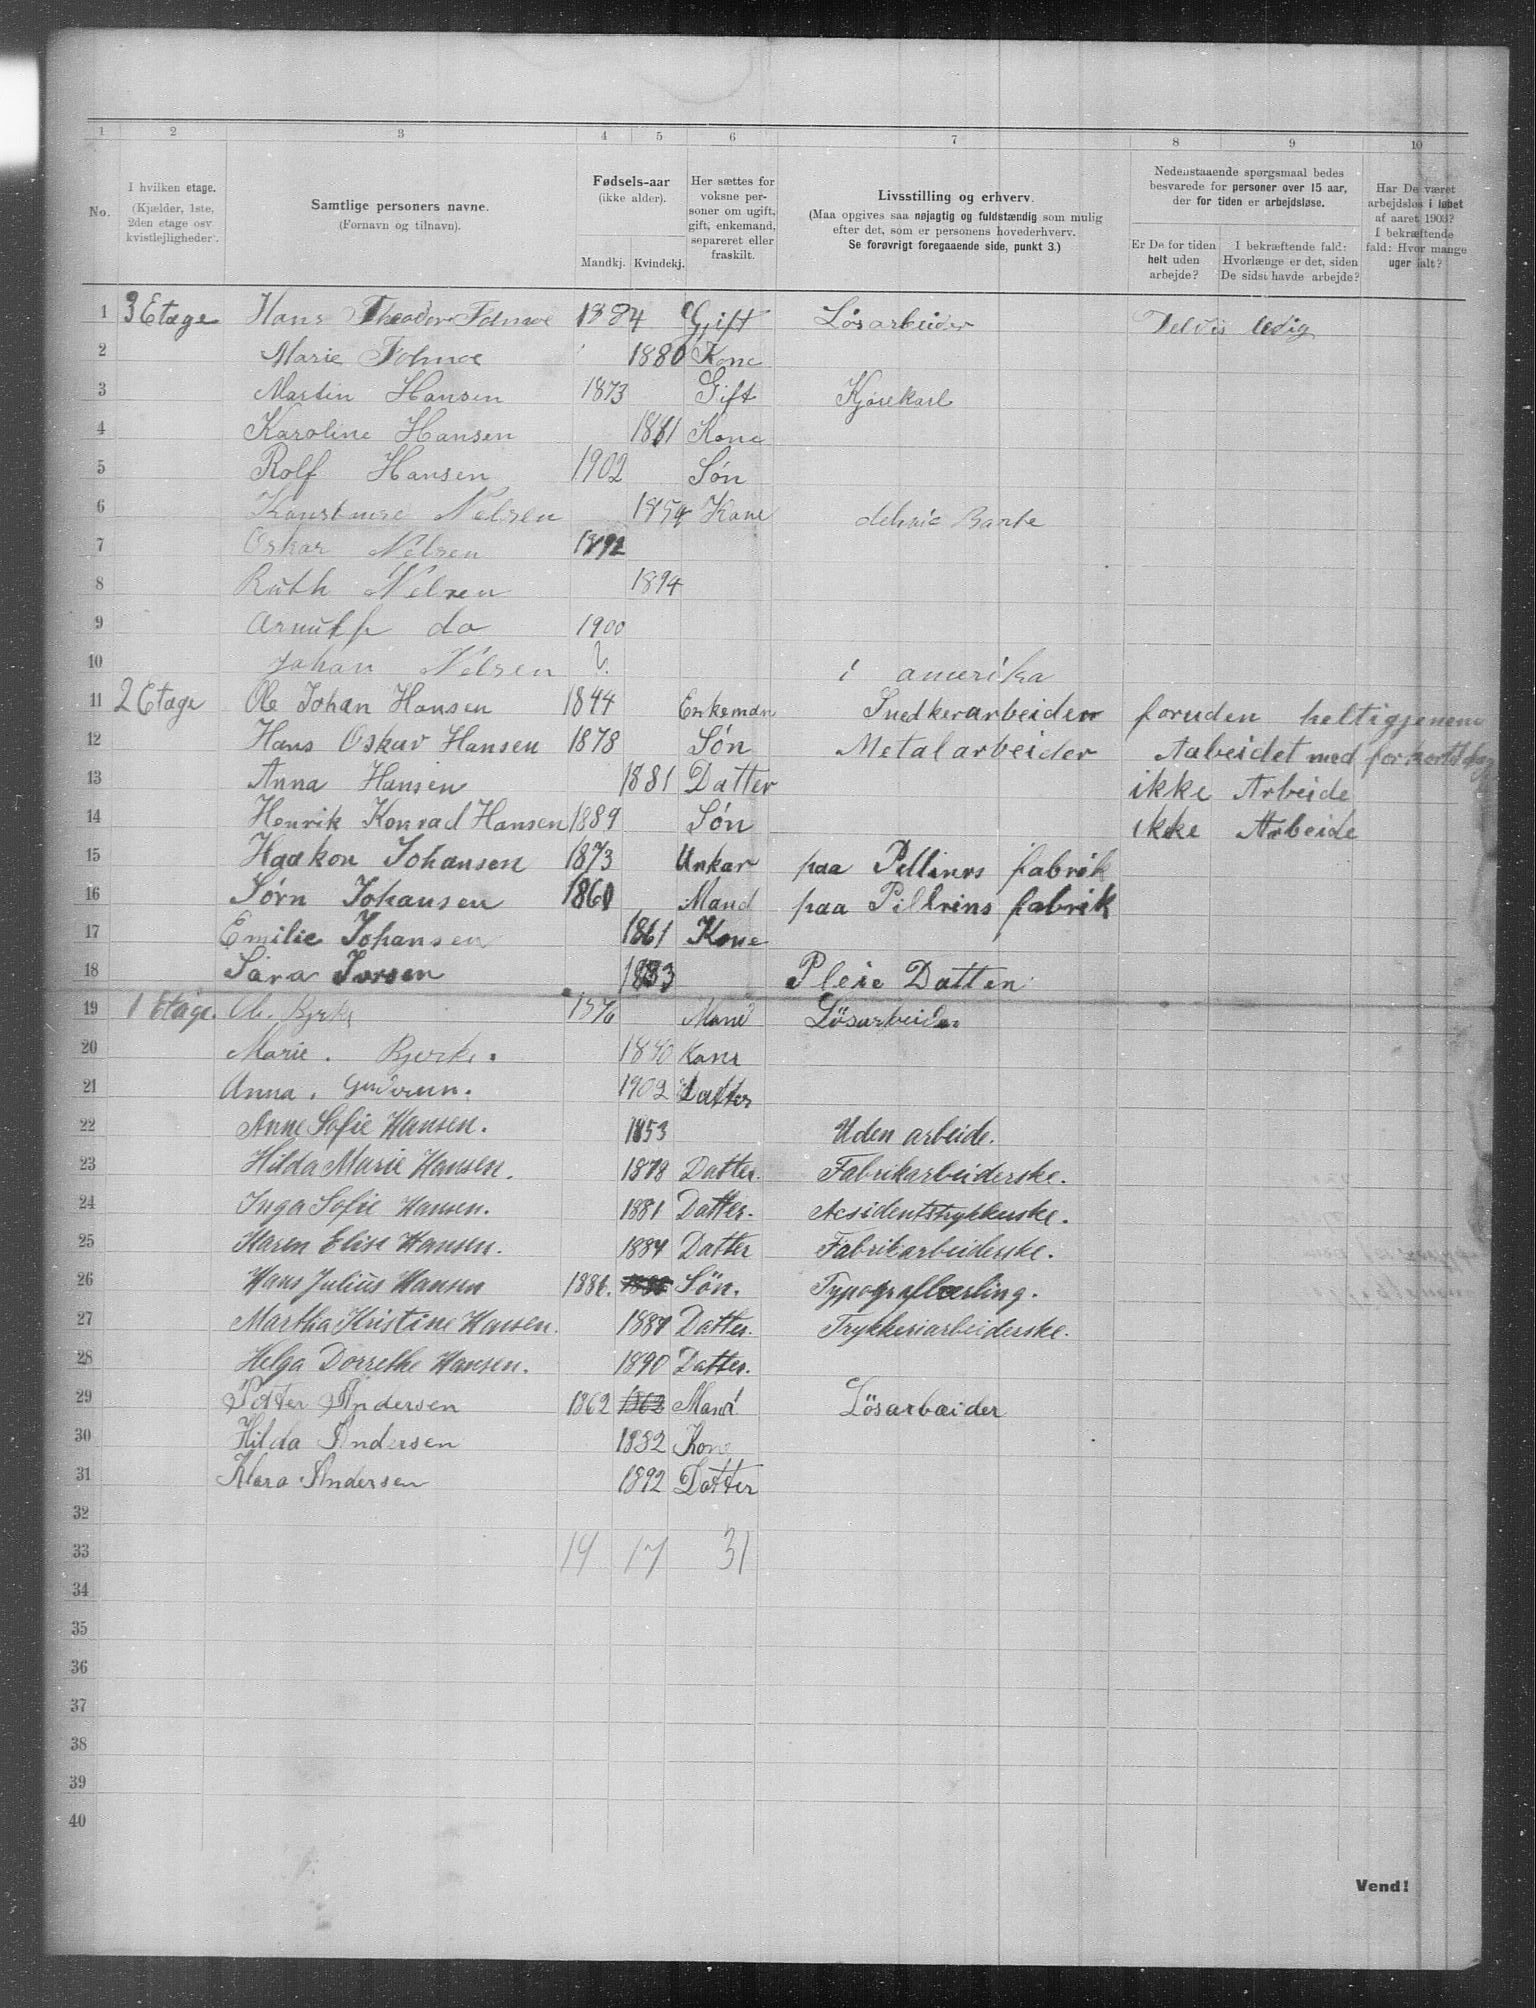 1 2 3 4 5 6 7 8 9 10
No.
I hvilken etage.
(Kjælder, 1ste,
2den etage osv.
kvistlejligheder).
Samtlige personers navne.
(Fornavn og tilnavn).
Fødsels-aar
(ikke alder).
Mandkj. Kvindekj.
Her sættes for
voksne per-
soner om ugift,
gift, enkemand,
separeret eller
fraskilt.
Livsstilling og erhverv.
(Maa opgives saa nøjagtig og fuldstændig som mulig
efter det, som er personens hovederhverv.
Se forøvrigt foregaaende side, punkt 3.)
Nedenstaaende spørgsmaal bedes
besvarede for personer over 15 aar,
der for tiden er arbejdsløse.
Er De for tiden
helt uden
arbejde?
I bekræftende fald:
Hvorlænge er det, siden
De sidst havde arbejde?
Har De været
arbejdsløs i løbet
af aaret 1903?
I bekræftende
fald: Hvor mange
uger ialt?
1 3 Etage Hans Theodor 1884 Gift Løsarbeider Delvis ledig
2 Marie 1880 Kone
3 Martin Hansen 1873 Gift Kjørekarl
4 Karoline Hansen 1881 Kone
5 Rolf Hansen 1902 Søn
6 Nelsen 1854 Kone
7 Oskar Nelsen 1892
8 Ruth Nelsen 1894
9 Arnulf do 1900
10 Johan Nelsen ? i amerika
11 2 Etage Ole Johan Hansen 1844 Enkeman Snedkerarbeider foruden heltigjenem
12 Hans Oskar Hansen 1878 Søn Metalarbeider Aabeidet med forkortt dag
13 Anna Hansen 1881 Datter ikke Arbeide
14 Henrik Konrad Hansen 1889 Søn ikke Arbeide
15 Haakon Johansen 1873 Unkar paa Pellerins fabrik
16 Sørn Johansen 1860 Mand paa Pillrins fabrik
17 Emilie Johansen 1861 Kone
18 Sara 1883 Pleie Datter
19 1 Etage. Ole Bjerke 1876 Mand Lösarbeider
20 Marie. Bjerke. 1880 Kone
21 Anna. Gudrun. 1902 Datter
22 Anne Sofie Hansen. 1853 Uden arbeide.
23 Hilda Marie Hansen. 1878 Datter. Fabrikarbeiderske.
24 Inga Sofie Hansen. 1881 Datter. Acsidentstrykkerske.
25 Karen Elise Hansen. 1884 Datter Fabrikarbeiderske.
26 Hans Julius Hansen 1886. Sön. Typograflærling.
27 Martha Kristine Hansen. 1887 Datter. Trykkeriarbeiderske.
28 Helga Dorrethe Hansen. 1890 Datter.
29 Petter Andersen 1862 1862 Mand Lösarbæider
30 Hilda Andersen 1882 Kone
31 Klara Andersen 1892 Datter
32
33 14 17 31
34
35
36
37
38
39
40
Vend!